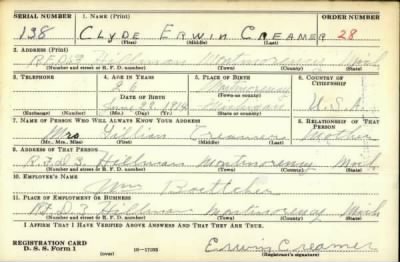 SERIAL NUMBER 1. NAME (Print) ORDER NUMBER
138 CLYDE ERWIN CREAMER 28
(First) (Middle) (Last)
2. ADDRESS (Print)
R.F.D.3 Hillman Montmorency Mich
(Number and street or R. F. D. number) (Town) (County) (State)
3. TELEPHONE 4. AGE IN YEARS 5. PLACE OF BIRTH 6. COUNTRY OF CITIZENSHIP
26 Montmorency
DATE OF BIRTH (Town or county)
June 22, 1914 Michigan U.S.A.
(Exchange) (Number) (Mo.) (Day) (Yr.) (State or country)
7. NAME OF PERSON WHO WILL ALWAYS KNOW YOUR ADDRESS 8. RELATIONSHIP OF THAT PERSON
Mrs Lillian Creamer Mother
(Mr., Mrs., Miss) (First) (Middle) (Last)
9. ADDRESS OF THAT PERSON
R.F.D.3 Hillman Montmorency Mich.
(Number and street or R. F. D. number) (Town) (County) (State)
10. EMPLOYER'S NAME
Wm Boettcher
11. PLACE OF EMPLOYMENT OR BUSINESS
R.F.D.3 Hillman Montmorency Mich
(Number and street or R. F. D. number) (Town) (County) (State)
I AFFIRM THAT I HAVE VERIFIED ABOVE ANSWERS AND THAT THEY ARE TRUE.
REGISTRATION CARD
D. S. S. Form 1 (over) Erwin Creamer
(Registrant's signature)